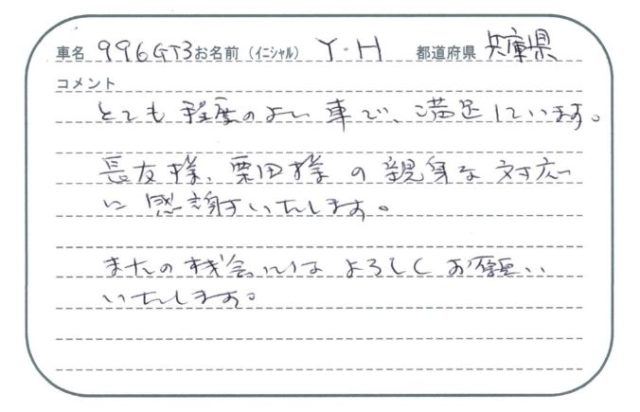 車名 996GT3 お名前（イニシャル） Y・H 都道府県 兵庫県
コメント
とても程度のよい車で、満足しています。
長友様、栗田様の親身な対応
に感謝いたします。
またの機会にはよろしくお願い
いたします。